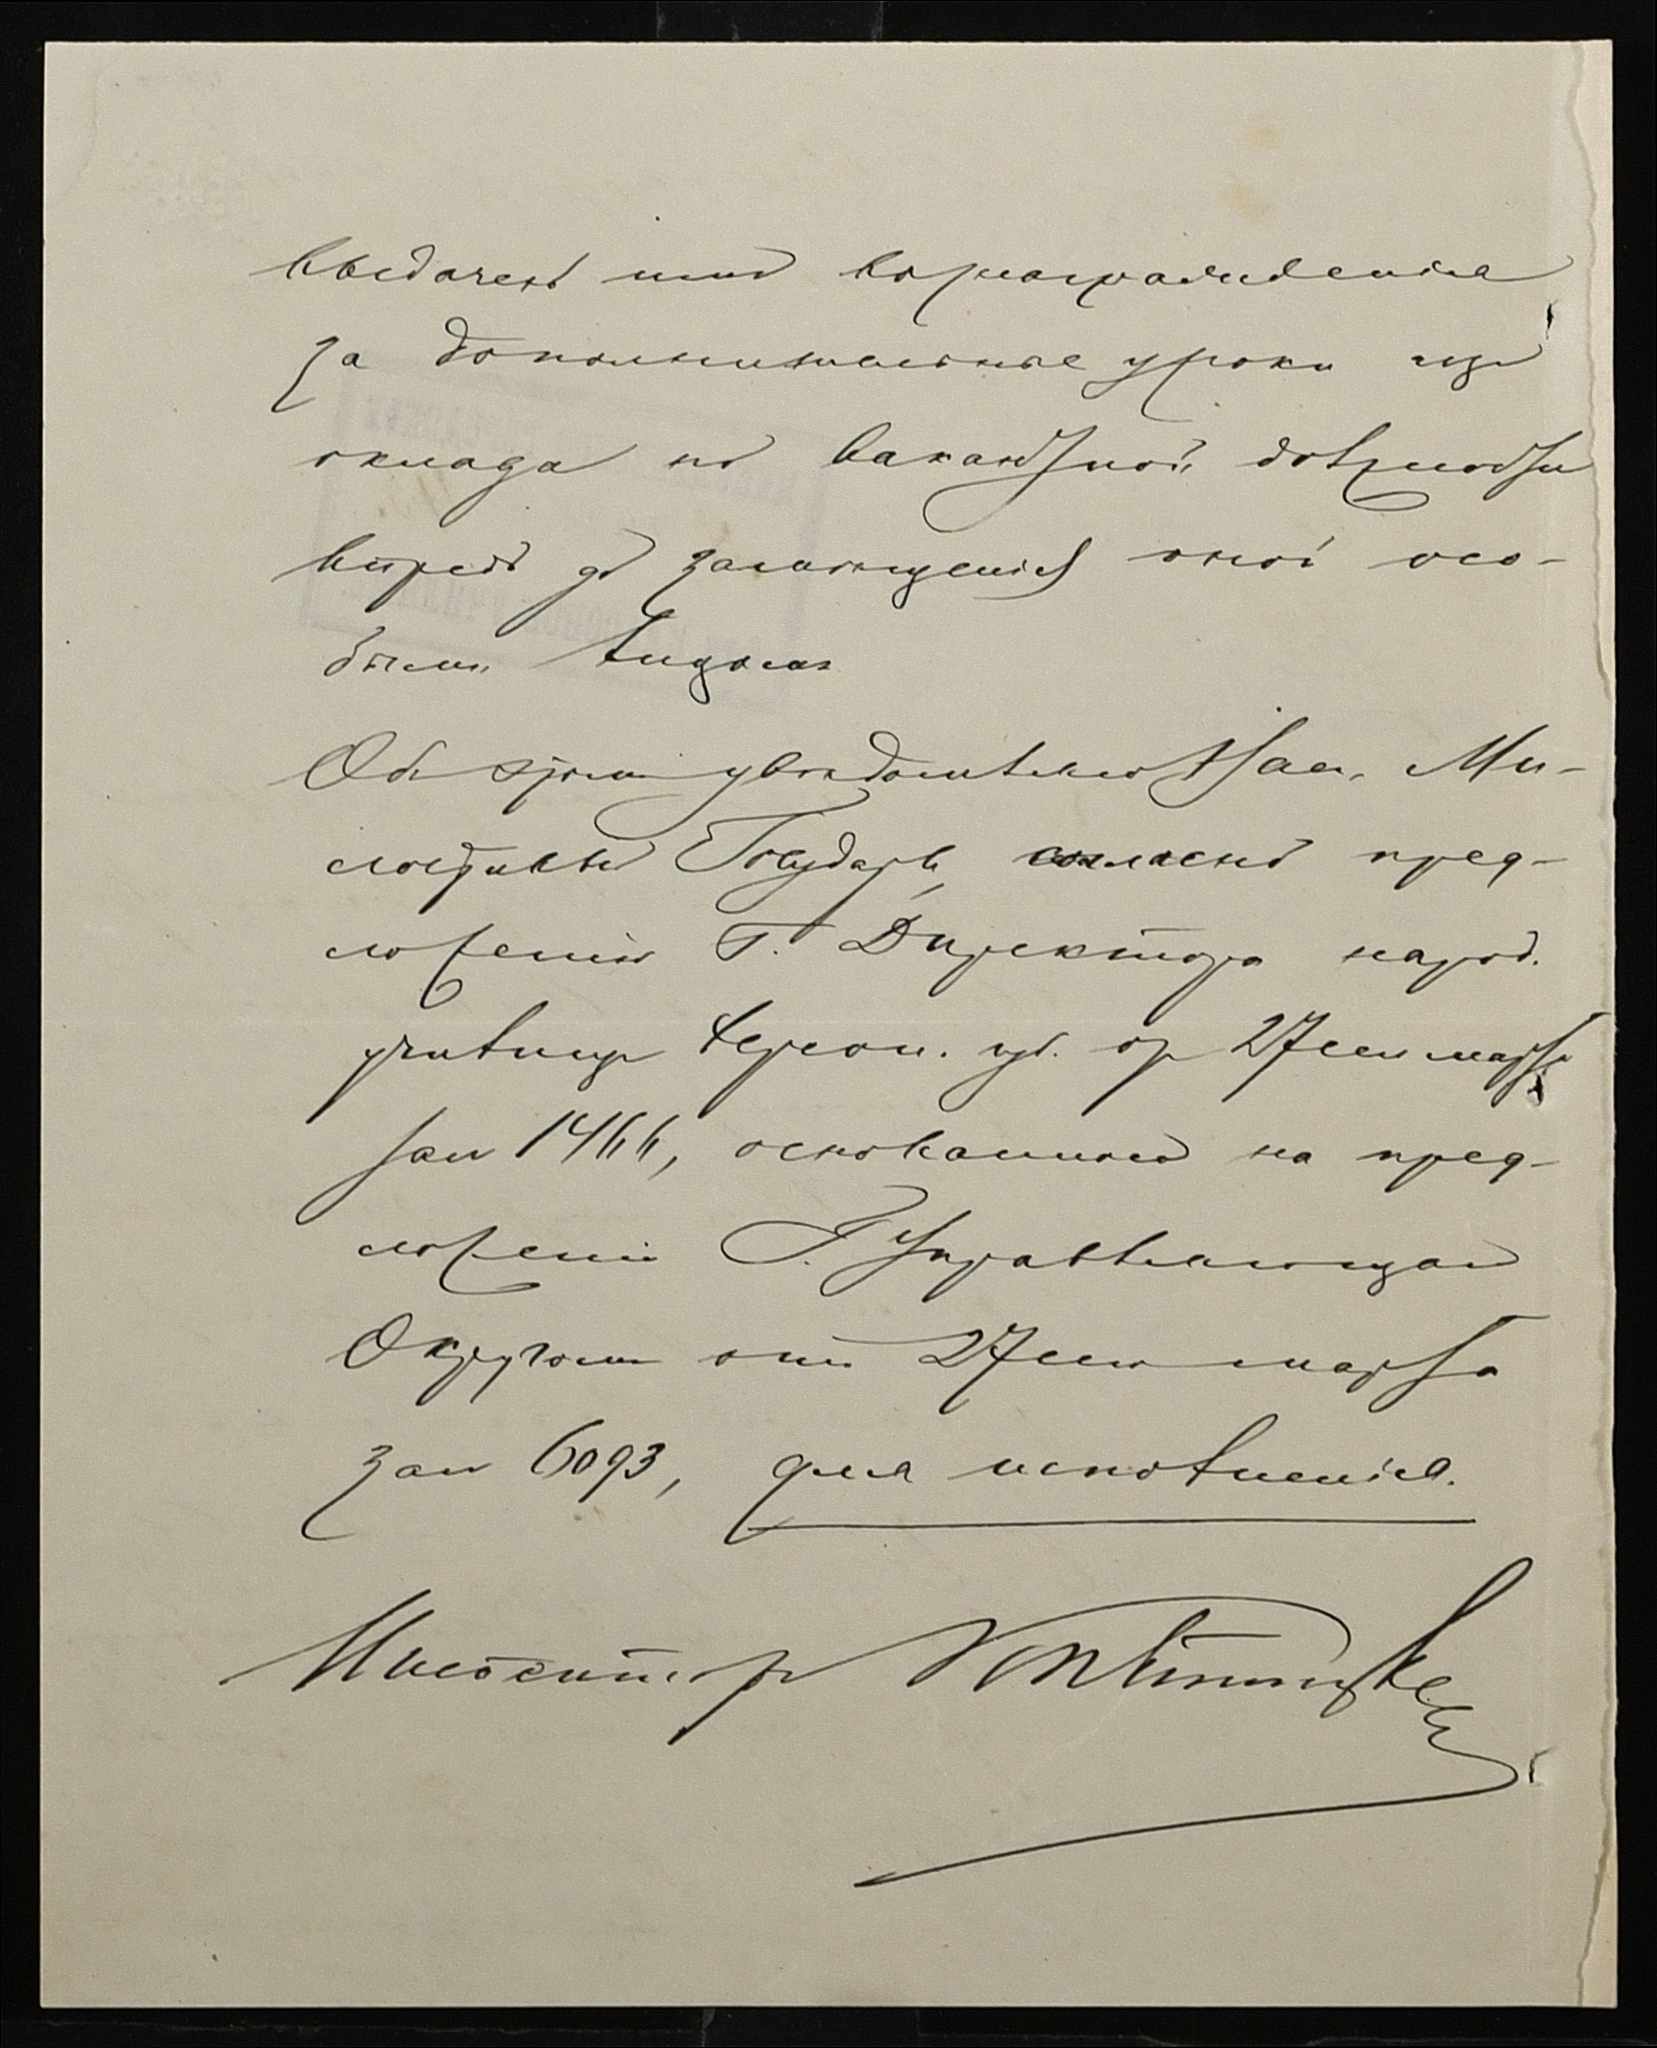 выдачею ему вознагражденія
за дополнительные уроки изъ
оклада по вакантной должности
впредь до замѣщенія оной осо-
бымъ лицомъ
Объ этомъ увѣдомляю Васъ, Ми-
лостивый Государь, согласно пред-
ложенію Г. Директора народ.
училищъ Херсон. губ. отъ 27сего марта
за № 1466, основанному на пред-
ложеніи Г. Управляющаго
Округомъ отъ 27сего марта
за № 6093, для исполненія.
Инспекторъ